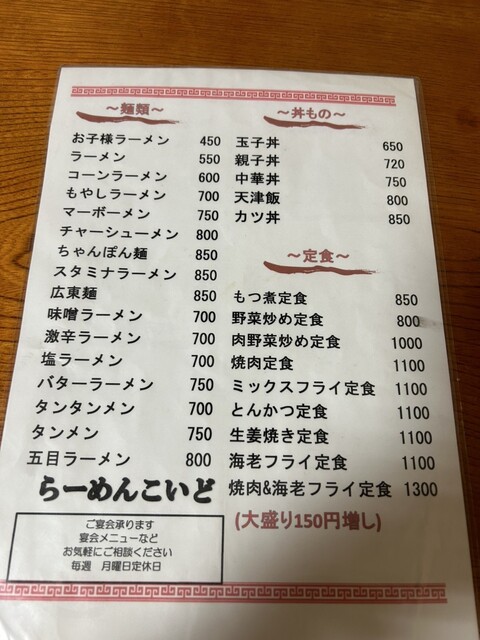 ～麺類～
お子様ラーメン 450
ラーメン 550
コーンラーメン 600
もやしラーメン 700
マーボーメン 750
チャーシューメン 800
ちゃんぽん麺 850
スタミナラーメン 850
広東麺 850
味噌ラーメン 700
激辛ラーメン 700
塩ラーメン 700
バターラーメン 750
タンタンメン 700
タンメン 750
五目ラーメン 800
らーめんこいど
ご宴会承ります
宴会メニューなど
お気軽にご相談ください
毎週 月曜日定休日
～丼もの～
玉子丼 650
親子丼 720
中華丼 750
天津飯 800
カツ丼 850
～定食～
もつ煮定食 850
野菜炒め定食 800
肉野菜炒め定食 1000
焼肉定食 1100
ミックスフライ定食 1100
とんかつ定食 1100
生姜焼き定食 1100
海老フライ定食 1100
焼肉&海老フライ定食 1300
(大盛り150円増し)